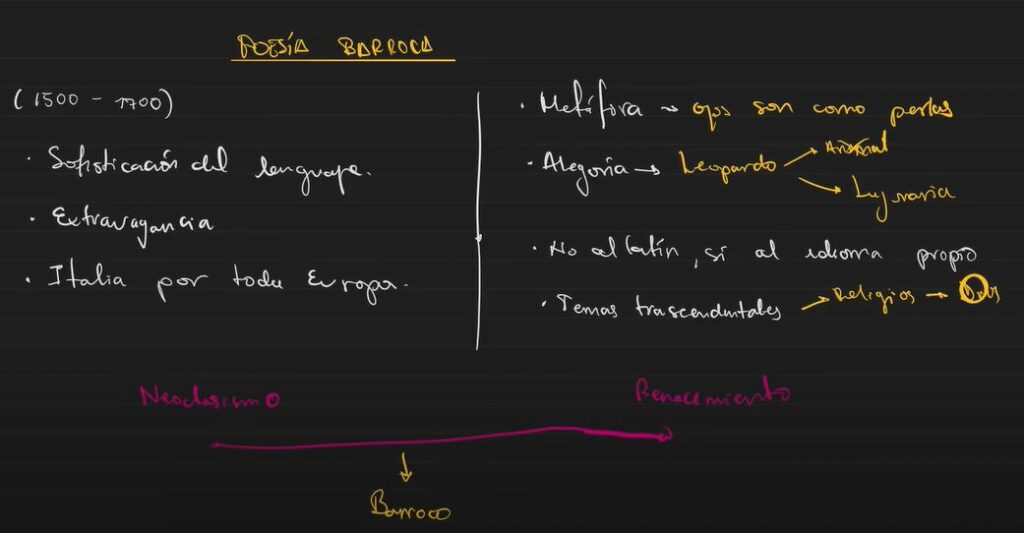 POESÍA BARROCA
(1500 - 1700)
· Sofisticación del lenguaje.
· Extravagancia
· Italia por toda Europa.
· Metáfora → ojos son como perlas
· Alegoría → Leopardo → Animal
→ Lujuria
· No al latín, sí al idioma propio
· Temas trascendentales → Religios → Dios
Neoclasismo
Renacimiento
Barroco